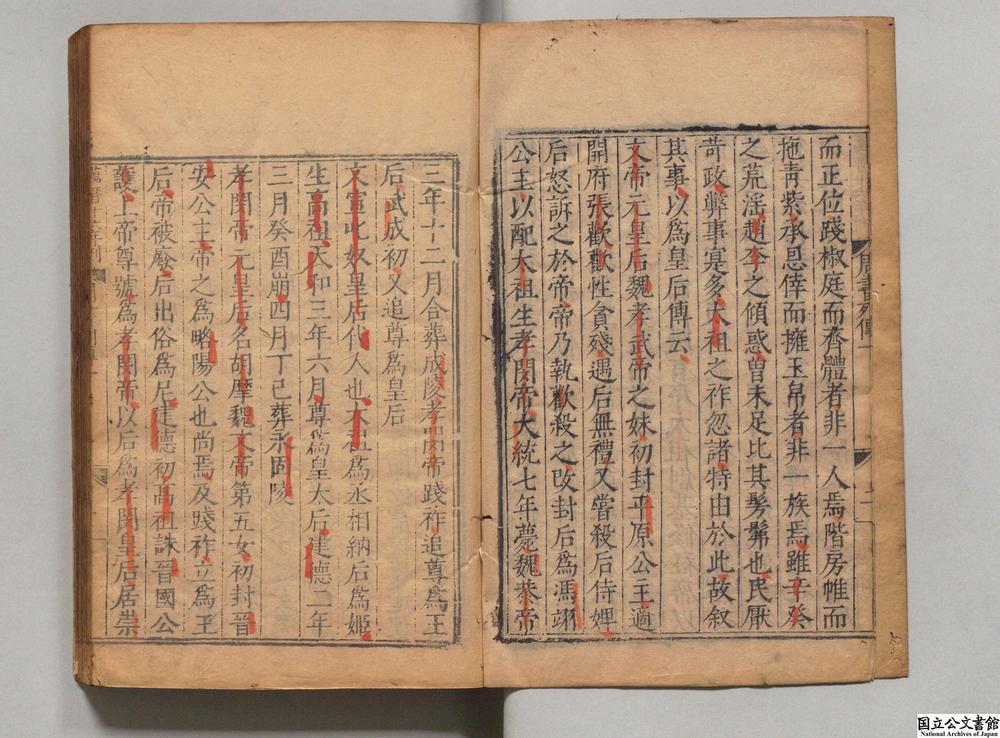 而正位踐椒庭而齊體者非一人焉階房帷而
拖青紫承恩倖而擁玉帛者非一族焉雖辛癸
之荒淫趙李之傾惑曾未足比其髣髴也民厭
苛政弊事寔多太祖之祚忽諸特由於此故叙
其事以為皇后傳云
文帝元皇后魏孝武帝之妹初封平原公主適
開府張歡歡性貪殘遇后無禮又嘗殺后侍婢
后怒訴之於帝帝乃執歡殺之改封后為馮翊
公主以配太祖生孝閔帝大統七年薨魏恭帝
三年十二月合葬成陵孝閔帝踐祚追尊為王
后武成初又追尊為皇后
文宣叱奴皇后代人也太祖為丞相納后為姬
生高祖天和三年六月尊為皇太后建德二年
三月癸酉崩四月丁巳葬永固陵
孝閔帝元皇后名胡摩魏文帝第五女初封晉
安公主帝之為略陽公也尚焉及踐祚立為王
后帝被廢后出俗為尼建德初高祖誅晉國公
護上帝尊號為孝閔帝以后為孝閔皇后居崇
国立公文書館
National Archives of Japan